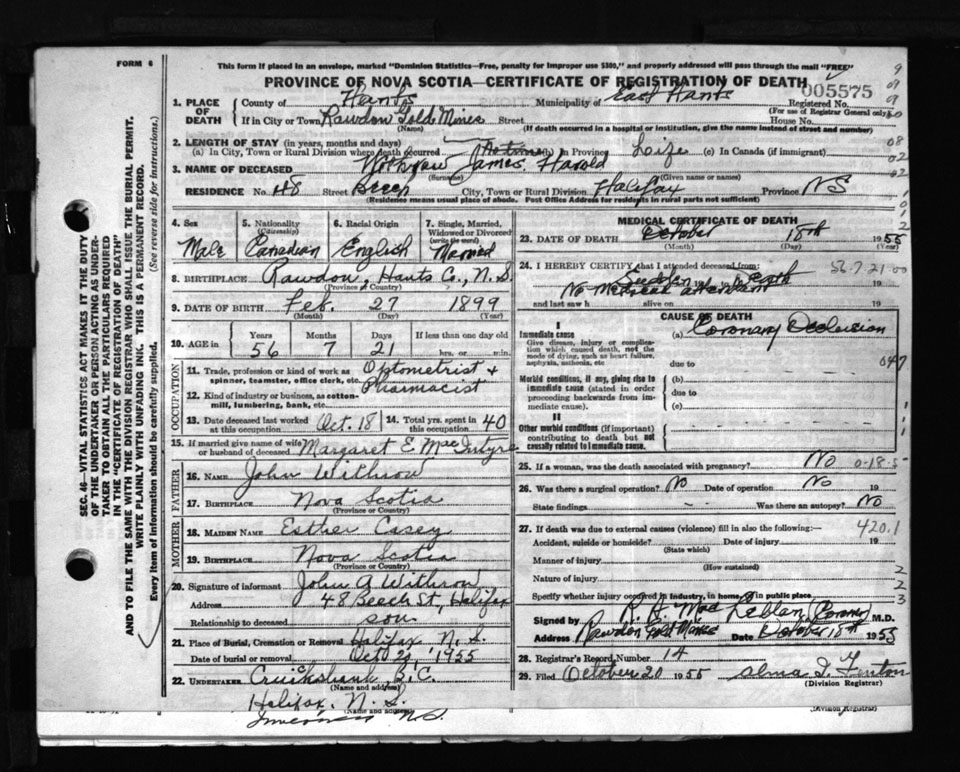 FORM 6
This form if placed in an envelope, marked "Dominion Statistics—Free, penalty for improper use $300," and properly addressed will pass through the mail "FREE"
PROVINCE OF NOVA SCOTIA—CERTIFICATE OF REGISTRATION OF DEATH
005575
Registered No.
(For use of Registrar General only)
1. PLACE OF DEATH
County of Hants
Municipality of East Hants
If in City or Town Rawdon Gold Mines Street House No.
(Name) (If death occurred in a hospital or institution, give the name instead of street and number)
2. LENGTH OF STAY (in years, months and days)
(a) In City, Town or Rural Division where death occurred (b) In Province Life (c) In Canada (if immigrant)
3. NAME OF DECEASED Withrow James Harold
(Surname) (Given name or names)
RESIDENCE No. 48 Street Beech City, Town or Rural Division Halifax Province NS
(Residence means usual place of abode. Post Office Address for residents in rural parts not sufficient)
4. Sex Male
5. Nationality (Citizenship) Canadian
6. Racial Origin English
7. Single, Married, Widowed or Divorced (write the word) Married
8. BIRTHPLACE Rawdon, Hants Co., N.S.
(Province or Country)
9. DATE OF BIRTH Feb. 27 1899
(Month) (Day) (Year)
10. AGE in Years Months Days If less than one day old
56 7 21 hrs. or min.
OCCUPATION
11. Trade, profession or kind of work as spinner, teamster, office clerk, etc. Optometrist + Pharmacist
12. Kind of industry or business, as cotton-mill, lumbering, bank, etc.
13. Date deceased last worked at this occupation Oct. 18
14. Total yrs. spent in this occupation 40
15. If married give name of wife or husband of deceased Margaret E MacIntyre
FATHER
16. NAME John Withrow
17. BIRTHPLACE Nova Scotia
(Province or Country)
MOTHER
18. MAIDEN NAME Esther Casey
19. BIRTHPLACE Nova Scotia
(Province or Country)
20. Signature of informant John A Withrow
Address 48 Beech St, Halifax
Relationship to deceased son
21. Place of Burial, Cremation or Removal Halifax N.S.
Date of burial or removal Oct 1955
22. UNDERTAKER Cruickshank
(Name and address)
Halifax, N.S.
(Name and address)
N.S.
MEDICAL CERTIFICATE OF DEATH
23. DATE OF DEATH October 18th 1955
(Month) (Day)
24. I HEREBY CERTIFY that I attended deceased from: Sudden death
No medical attendant
and last saw h alive on 19
56-7-21-00
CAUSE OF DEATH
I
Immediate cause (a) Coronary Occlusion
Give disease, injury or complication which caused death, not the mode of dying, such as heart failure, asphyxia, asthenia, etc
due to
047
Morbid conditions, if any, giving rise to immediate cause (stated in order proceeding backwards from immediate cause).
(b)
due to
(c)
II
Other morbid conditions (if important) contributing to death but not causally related to immediate cause
25. If a woman, was the death associated with pregnancy? No
0-18-5
26. Was there a surgical operation? No Date of operation No 19
State findings - - Was there an autopsy? No
27. If death was due to external causes (violence) fill in also the following:
420.1
Accident, suicide or homicide? Date of injury 19
(State which)
Manner of injury
(How sustained)
Nature of injury
Specify whether injury occurred in industry, in home, or in public place
Signed by (Coroner) M.D.
Address Rawdon Gold Mines Date October 18th 1955
28. Registrar's Record Number 14
29. Filed October 20 1955 Alma I. Fenton
(Division Registrar)
(Division Registrar)
SEC. 46—VITAL STATISTICS ACT MAKES IT THE DUTY OF THE UNDERTAKER OR PERSON ACTING AS UNDERTAKER TO OBTAIN ALL THE PARTICULARS REQUIRED IN THE "CERTIFICATE OF REGISTRATION OF DEATH" AND TO FILE THE SAME WITH THE DIVISION REGISTRAR WHO SHALL ISSUE THE BURIAL PERMIT.
WRITE PLAINLY WITH UNFADING INK. THIS IS A PERMANENT RECORD.
Every item of information should be carefully supplied. (See reverse side for instructions.)